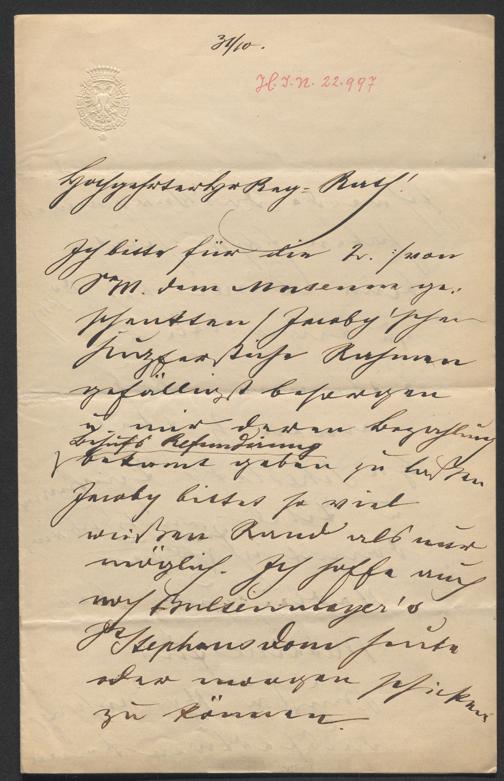 31/10.
H.I.N. 22.997
Hochgeehrter Hr Reg. Rath!
Ich bitte für die 2. :/von
Sr M. dem Museum ge-
schenkten/ Jacoby'schen
Rahmen
gefälligst besorgen
u. mir deren Bezahlung
behufs Refundirung
bekannt geben zu laßen
Jacoby bittet so viel
weißen Rand als nur
möglich. Ich hoffe auch
noch Bultemeyer's
St Stephansdom heute
oder morgen schicken
zu können.